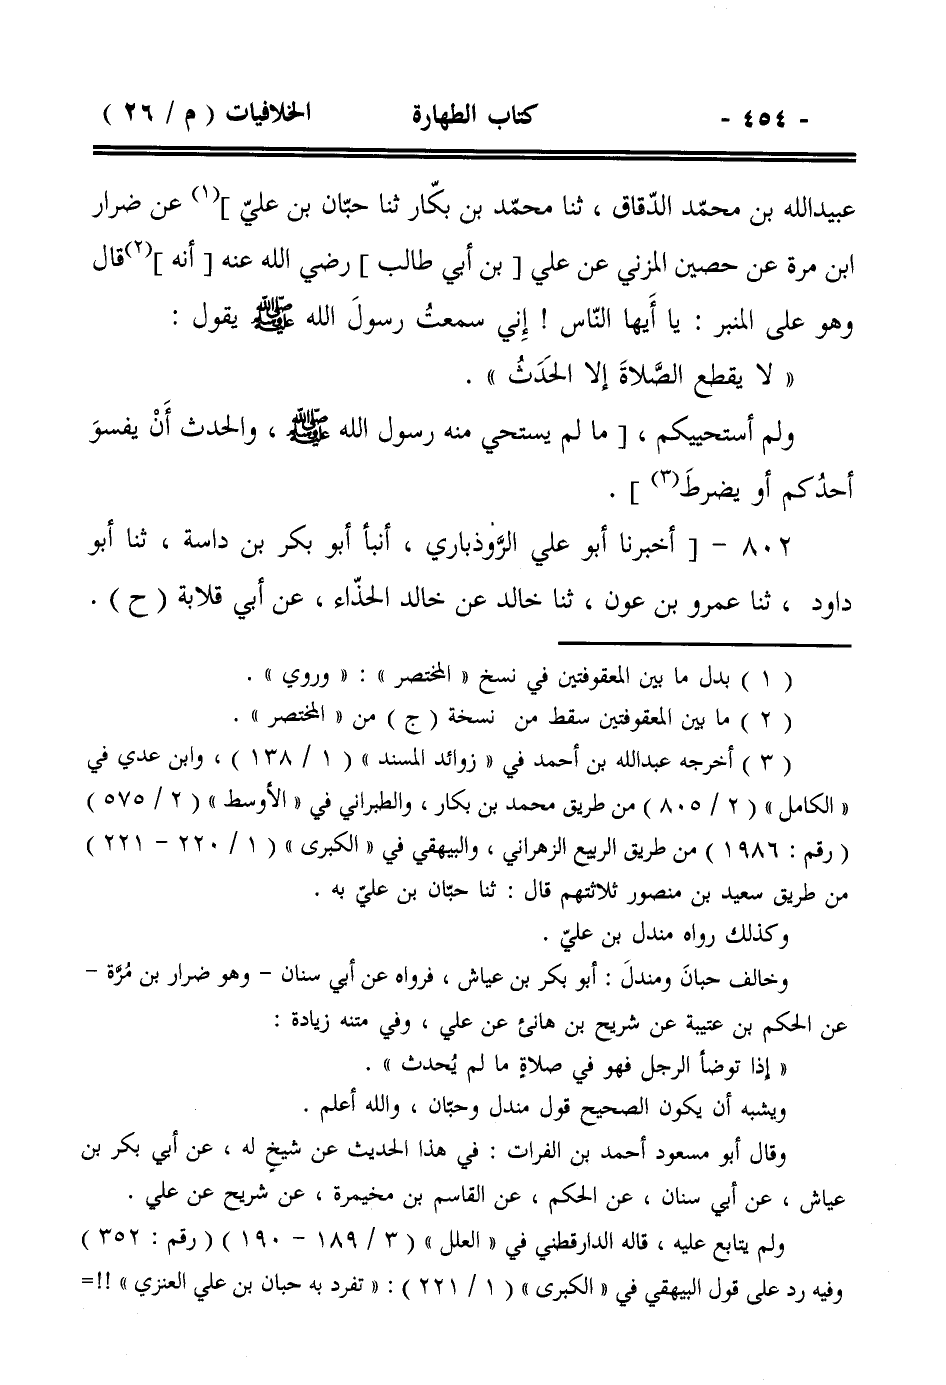 - ٤٥٤ - كتاب الطهارة الخلافيات ( م / ٢٦ )
عبيدالله بن محمّد الدّقاق ، ثنا محمّد بن بكّار ثنا حبّان بن عليّ ](١) عن ضرار
ابن مرة عن حصين المزني عن علي [ بن أبي طالب ] رضي الله عنه [ أنه ](٢)قال
وهو على المنبر : يا أَيها النّاس ! إِني سمعتُ رسولَ الله ﷺ يقول :
« لا يقطع الصَّلاةَ إلا الحَدَثُ » .
ولم أستحييكم ، [ ما لم يستحي منه رسول الله ﷺ ، والحدث أَنْ يفسوَ
أحدُكم أو يضرطَ(٣) ] .
٨٠٢ - [ أخبرنا أبو علي الرَّوذباري ، أنبأ أبو بكر بن داسة ، ثنا أبو
داود ، ثنا عمرو بن عون ، ثنا خالد عن خالد الحذّاء ، عن أبي قلابة ( ح ) .
( ١ ) بدل ما بين المعقوفتين في نسخ « المختصر » : « وروي » .
( ٢ ) ما بين المعقوفتين سقط من نسخة ( ج ) من « المختصر » .
( ٣ ) أخرجه عبدالله بن أحمد في « زوائد المسند » ( ١ / ١٣٨ ) ، وابن عدي في
« الكامل » ( ٢ / ٨٠٥ ) من طريق محمد بن بكار ، والطبراني في « الأوسط » ( ٢ / ٥٧٥ )
( رقم : ١٩٨٦ ) من طريق الربيع الزهراني ، والبيهقي في « الكبرى » ( ١ / ٢٢٠ - ٢٢١ )
من طريق سعيد بن منصور ثلاثتهم قال : ثنا حبّان بن عليّ به .
وكذلك رواه مندل بن عليّ .
وخالف حبانَ ومندلَ : أبو بكر بن عياش ، فرواه عن أبي سنان - وهو ضرار بن مُرَّة -
عن الحكم بن عتيبة عن شريح بن هانئ عن علي ، وفي متنه زيادة :
« إذا توضأ الرجل فهو في صلاةٍ ما لم يُحدث » .
ويشبه أن يكون الصحيح قول مندل وحبّان ، والله أعلم .
وقال أبو مسعود أحمد بن الفرات : في هذا الحديث عن شيخٍ له ، عن أبي بكر بن
عياش ، عن أبي سنان ، عن الحكم ، عن القاسم بن مخيمرة ، عن شريح عن علي .
ولم يتابع عليه ، قاله الدارقطني في « العلل » ( ٣ / ١٨٩ - ١٩٠ ) ( رقم : ٣٥٢ )
وفيه رد على قول البيهقي في « الكبرى » ( ١ / ٢٢١ ) : « تفرد به حبان بن علي العنزي » !!=